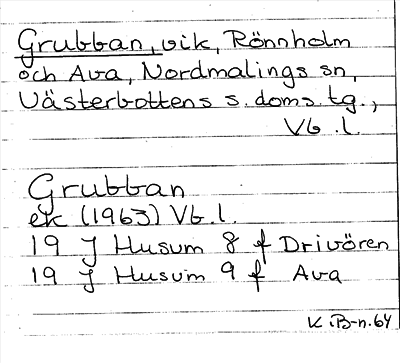 Grubban, vik, Rönnholm
och Ava, Nordmalings sn,
Västerbottens s. doms tg.,
Vb. l.
Grubban
ek (1963) Vb. l.
19 J Husum 8 f Drivören
19 J Husum 9 f Ava
K. B-n. 64